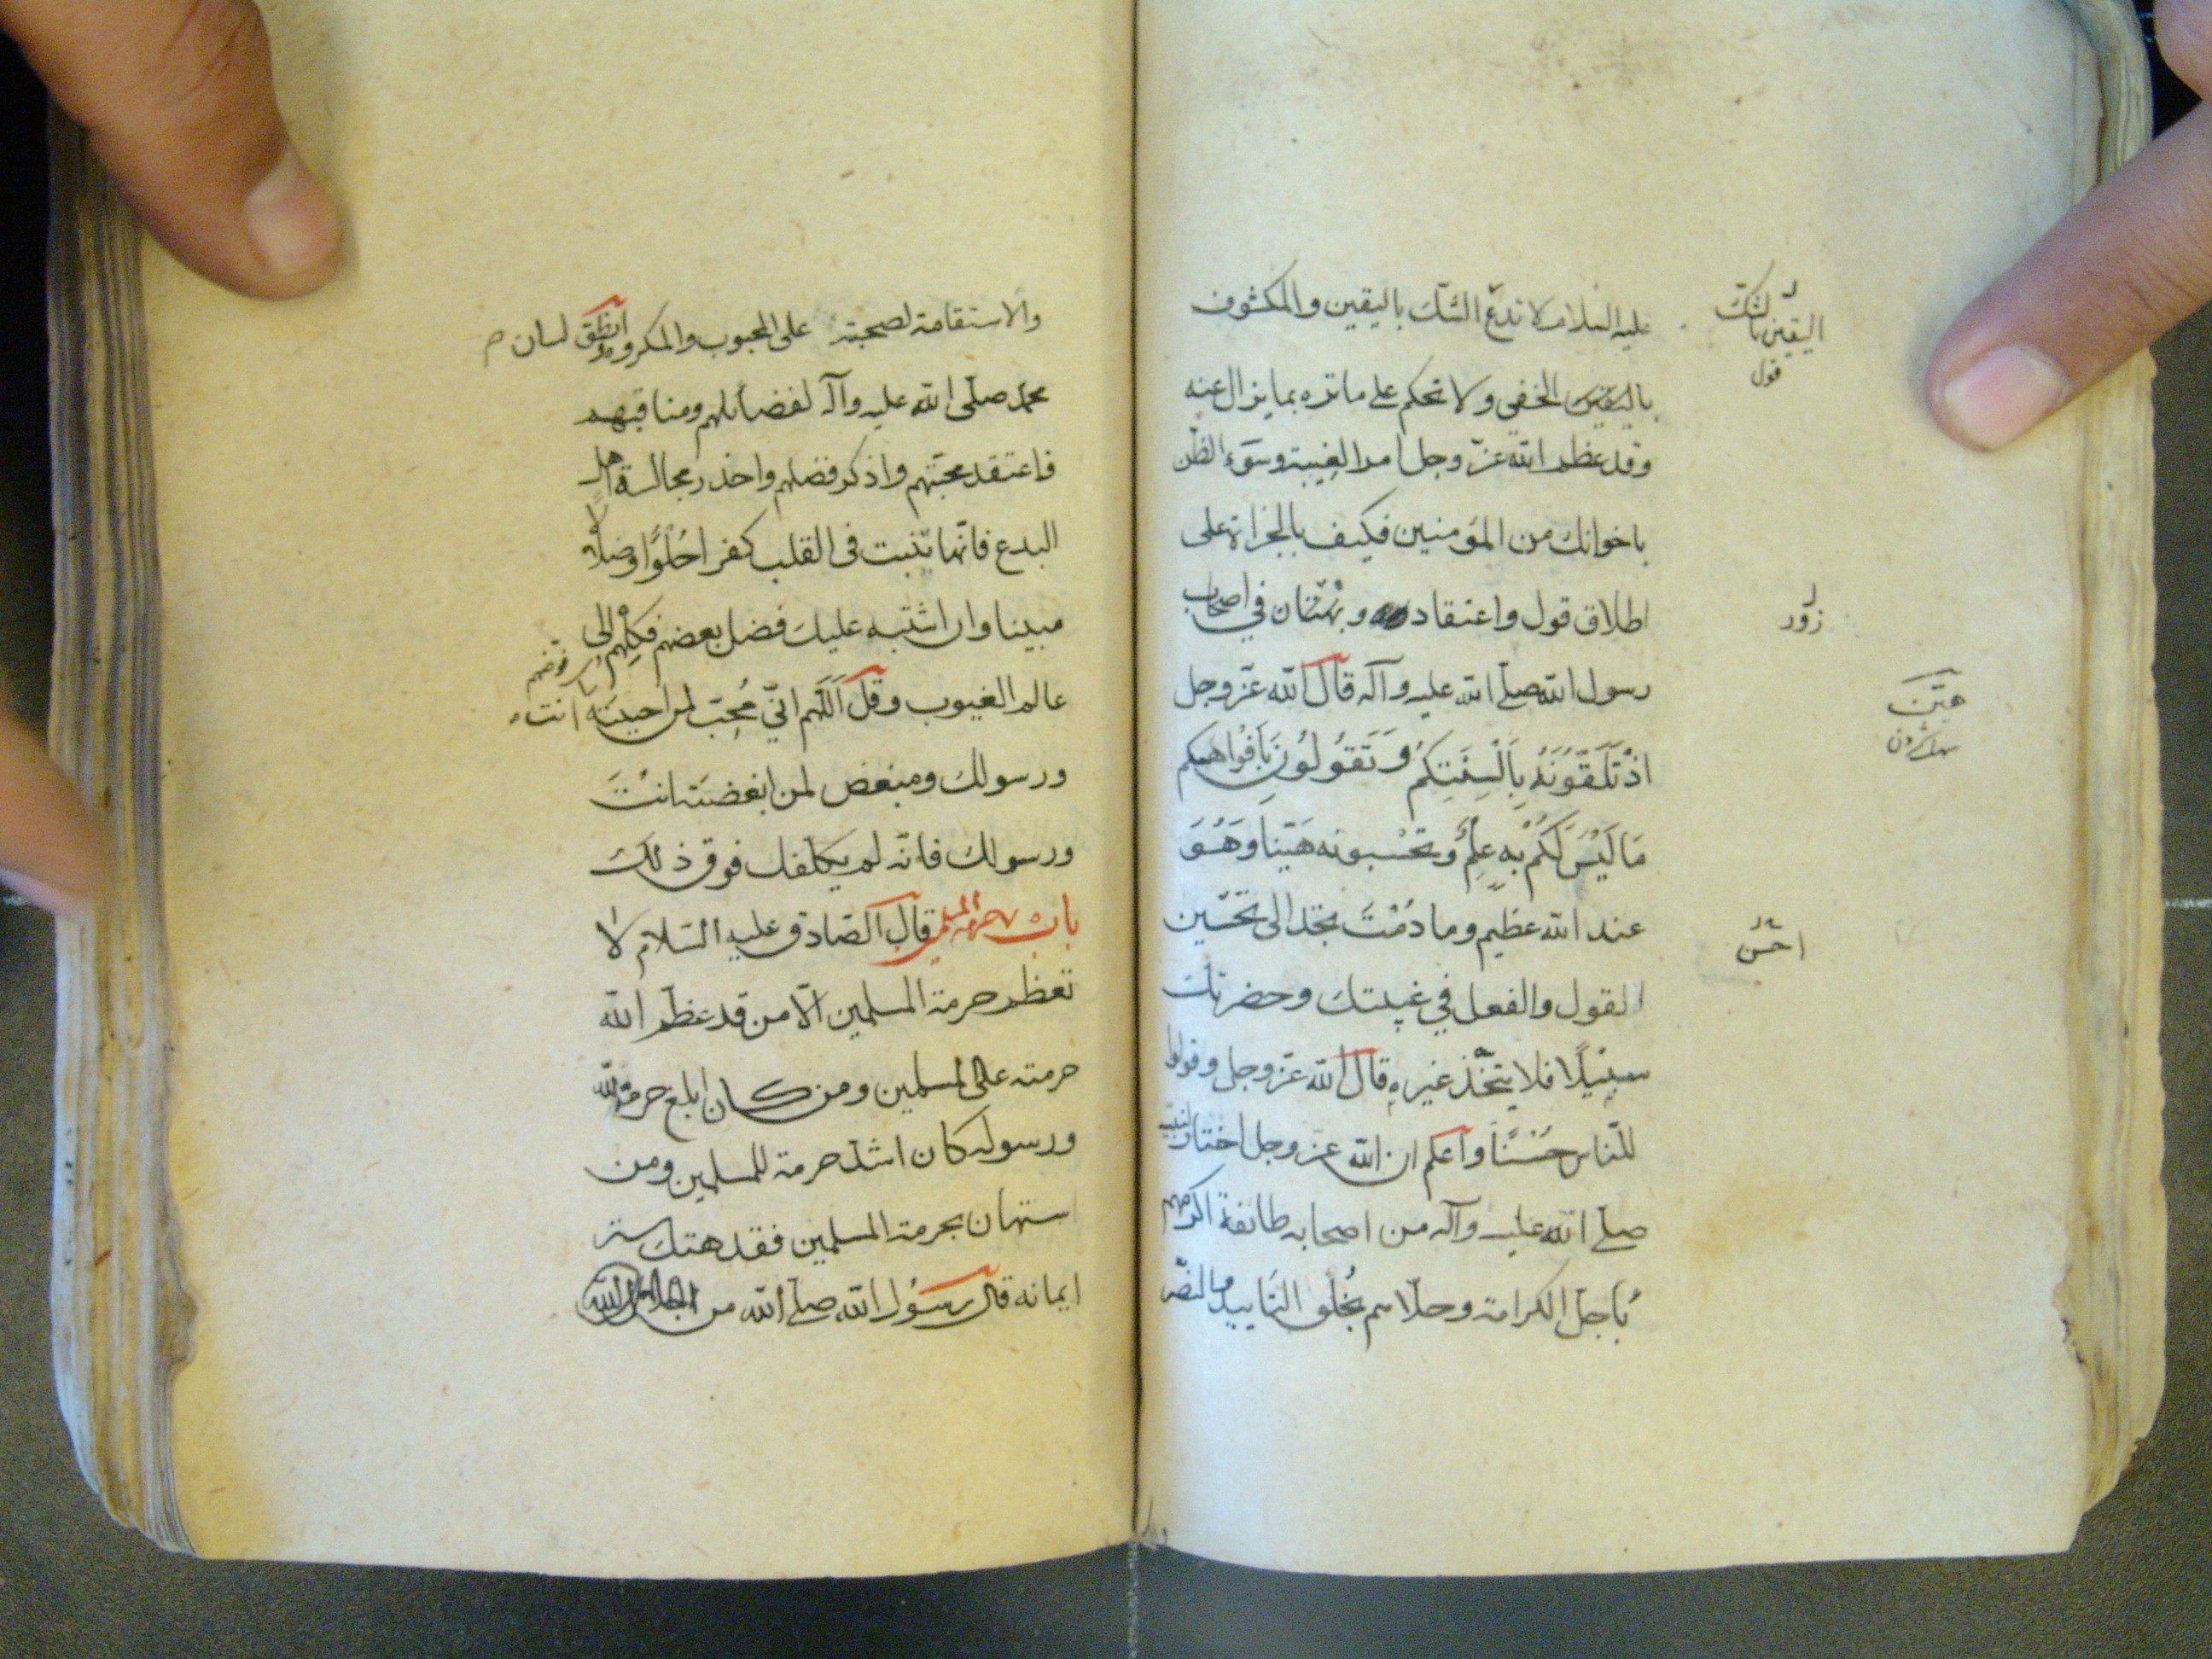 عليه السلام لا تدع الشك باليقين والمكشوف
باليقين الخفي ولا تحكم على ما تره بما يزال عنه
وقد عظم الله عزّ وجل امر الغيبة وسوء الظن
باخوانك من المؤمنين فكيف بالجراة على
اطلاق قول واعتقاد وبهتان في اصحاب
رسول الله صلى الله عليه وآله قال الله عزّ وجل
اذ تَلَقَّوْنَهُ بِاَلْسِنَتِكُمْ وَتَقُولُونَ بِاَفْوَاهِكم
مَا لَيْسَ لَكُمْ بِهِ عِلْمٌ وتَحْسبونه هَيّنا وَهُوَ
عند الله عظيم وما دُمْتَ تجد الى تحسين
القول والفعل في غيبتك وحضرتك
سبيلًا فلا يتخذ غيره قال الله عزّ وجل وقولوا
للنّاس حُسْنًا واعلم ان الله عزّ وجل اختار لنبيه
صلى الله عليه وآله من اصحابه طائفة اكرمهم
بأجل الكرامة وحلاهم بحُلى التأييد والنصر
اليقين بالشك
قول
زور
هيّن
احسن
والاستقامة لصحبته على المحبوب والمكروه وانطق لسان
محمد صلى الله عليه وآله لفضائلهم ومناقبهم
فاعتقد محبّتهم واذكر فضلهم واحذر مجالسة اهل
البدع فانّها تنبت في القلب كفرا خفيا وضلالا
مبينا وان اشتبه عليك فضل بعضهم فكِلْهم الى
عالم الغيوب وقل اللّهم انّي مُحِبّ لمن احببته انت
ورسولك ومبغض لمن ابغضته انتَ
ورسولك فانّه لم يكلّفك فوق ذلك
باب حرمة المسلمين قال الصّادق عليه السّلام لا
تعظم حرمة المسلمين الّا من قد عظم الله
حرمته على المسلمين ومن كان ابلغ حرمة لله
ورسوله كان اشدّ حرمة للمسلمين ومن
استهان بحرمة المسلمين فقد هتك ستر
ايمانه قال رسُول الله صلى الله من اجلال الله